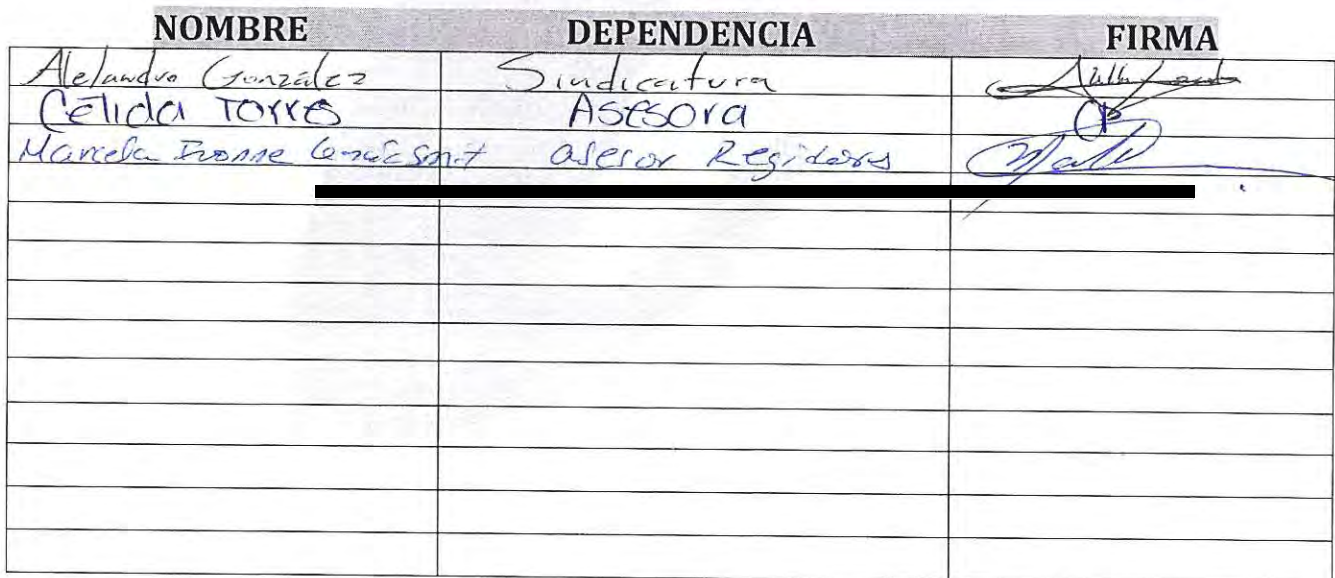 NOMBRE DEPENDENCIA FIRMA
Alejandro González Sindicatura
Célida Torres Asesora
Marcela Ivonne asesor Regidores